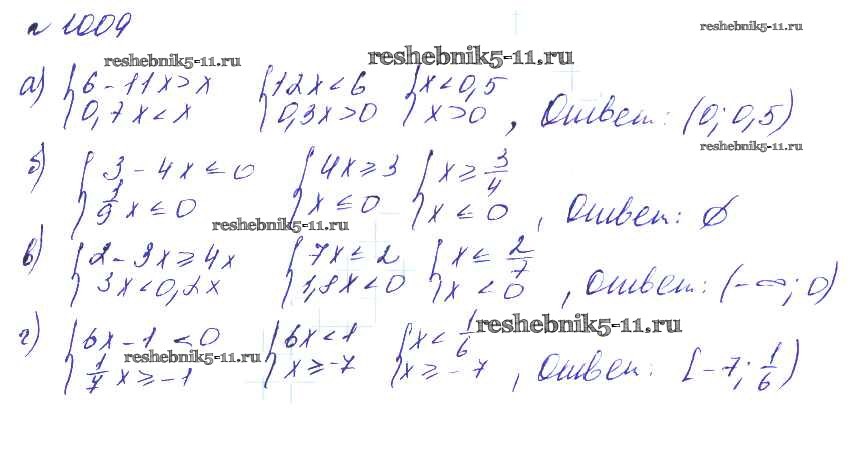 № 1009
reshebnik5-11.ru
reshebnik5-11.ru
reshebnik5-11.ru
а) {6 - 11x > x {12x < 6 {x < 0,5
{0,7x < x {0,3x > 0 {x > 0 , Ответ: (0; 0,5)
reshebnik5-11.ru
б) {3 - 4x ≤ 0 {4x ≥ 3 {x ≥ 3/4
{1/9 x ≤ 0 {x ≤ 0 {x ≤ 0 , Ответ: ∅
reshebnik5-11.ru
в) {2 - 3x ≥ 4x {7x ≤ 2 {x ≤ 2/7
{3x < 0,2x {1,8x < 0 {x < 0 , Ответ: (-∞; 0)
reshebnik5-11.ru
г) {6x - 1 < 0 {6x < 1 {x < 1/6
{1/7 x ≥ -1 {x ≥ -7 {x ≥ -7 , Ответ: [-7; 1/6)
reshebnik5-11.ru